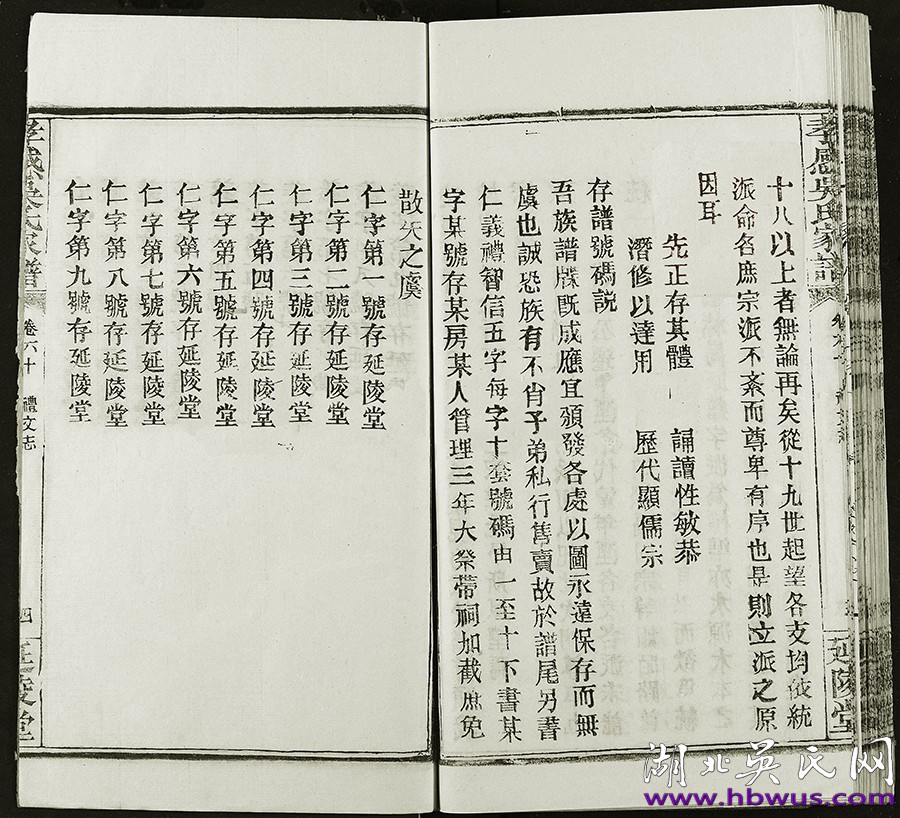 十八以上者無論再矣從十九世起望各支均依統
派命名庶宗派不紊而尊卑有序也是則立派之原
因耳
先正存其體　誦讀性敏恭
潛修以達用　歷代顯儒宗
存譜號碼說
吾族譜牒既成應宜頒發各處以圖永遠保存而無
虞也誠恐族有不肖子弟私行售賣故於譜尾另書
仁義禮智信五字每字十套號碼由一至十下書某
字某號存某房某人管理三年大祭帶祠加截庶免
散失之虞
仁字第一號存延陵堂
仁字第二號存延陵堂
仁字第三號存延陵堂
仁字第四號存延陵堂
仁字第五號存延陵堂
仁字第六號存延陵堂
仁字第七號存延陵堂
仁字第八號存延陵堂
仁字第九號存延陵堂
孝感吳氏家譜
卷六十　禮文志
四
延陵堂
孝感吳氏家譜
延陵堂
湖北吳氏网
www.hbwus.com